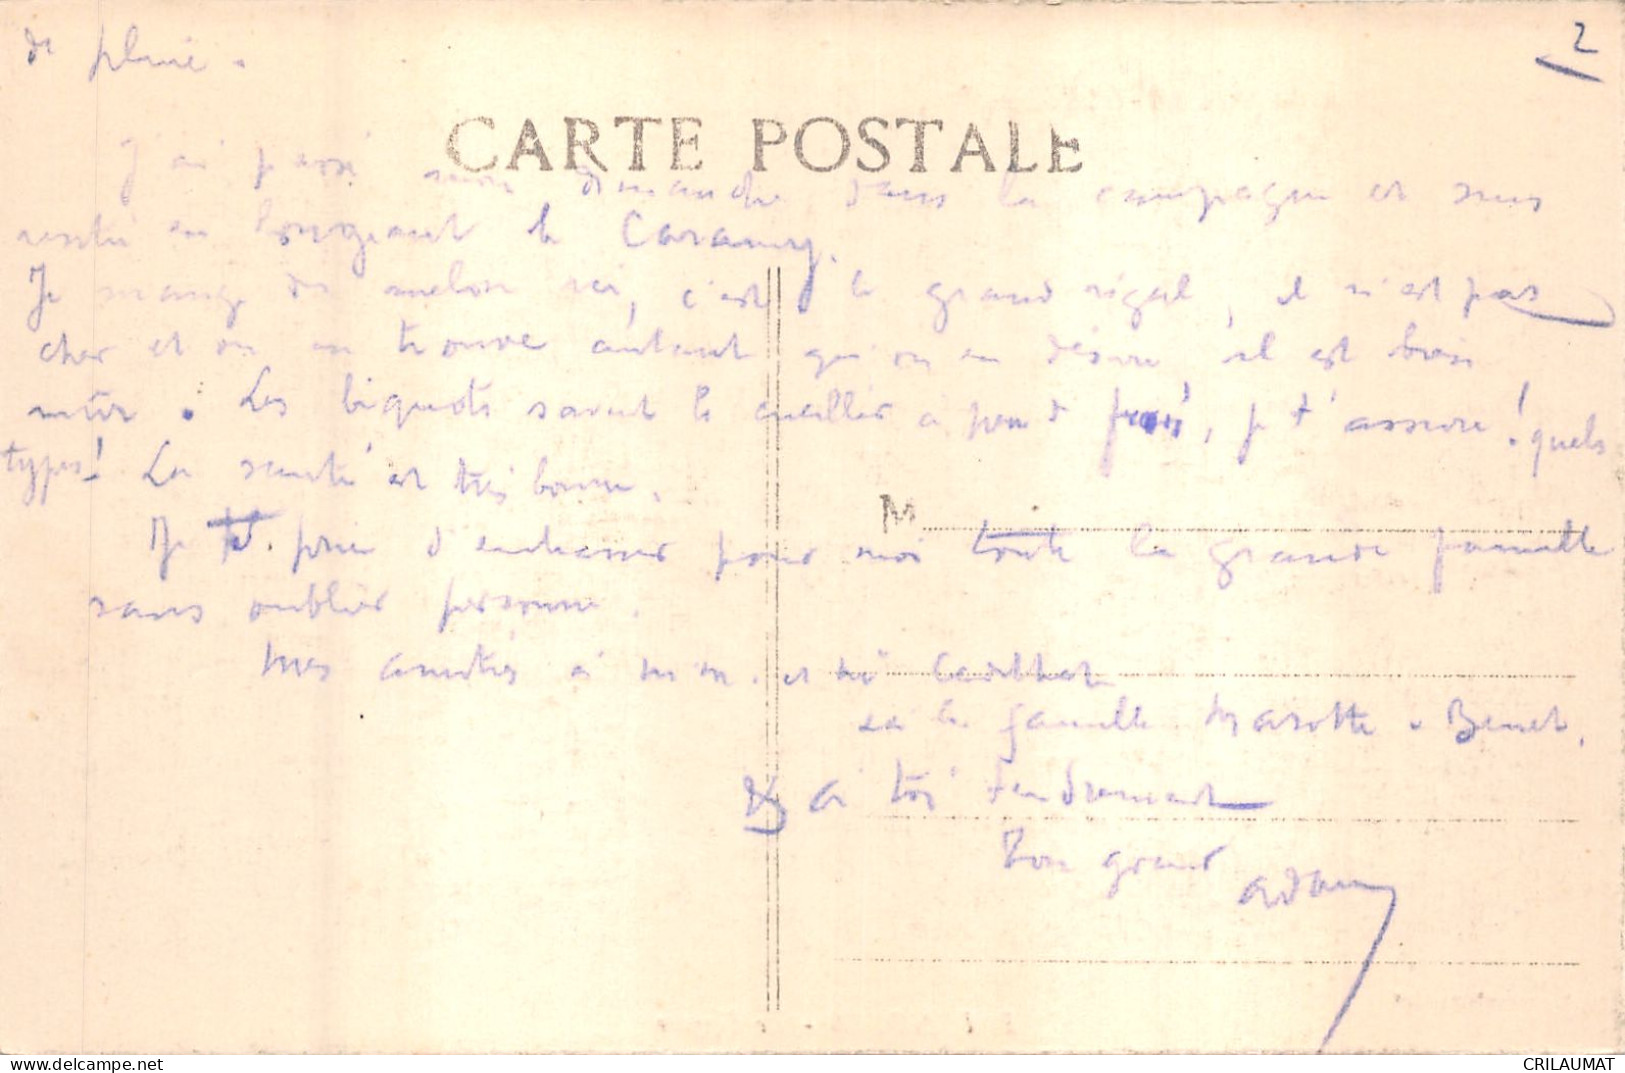 de pluie.
2
CARTE POSTALE
J'ai passé mon dimanche dans la campagne et suis
resté en longeant le Caramy.
Je mange du melon ici, c'est le grand régal, il n'est pas
cher et on en trouve autant qu'on en désire, il est bien
mûr. Les biquots savent le cueillir à peu de frais, je t'assure! quels
types! La santé est très bonne.
Je te prie d'embrasser pour moi toute la grande famille
M
sans oublier personne.
Mes amitiés à M. et
à la famille Marotte-Benet.
à toi tendrement
Ton grand
www.delcampe.net
CRILAUMAT